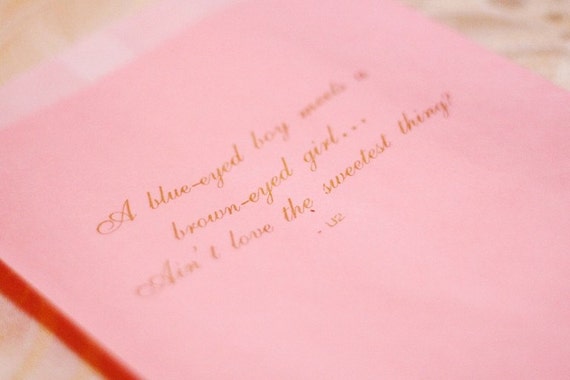 A blue-eyed boy meets a
brown-eyed girl...
Ain't love the sweetest thing?
- U2